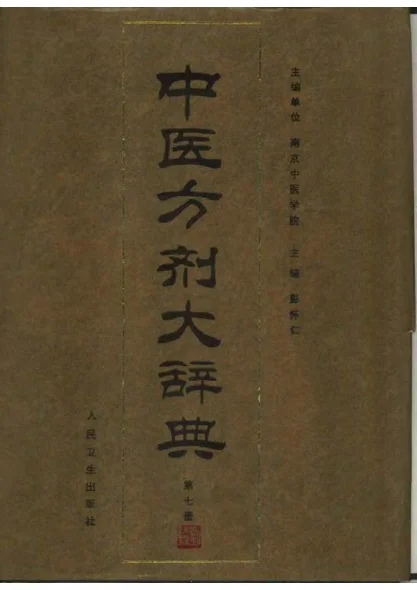 主编单位 南京中医学院 主编 彭怀仁
中医方剂大辞典
第七册
人民卫生出版社